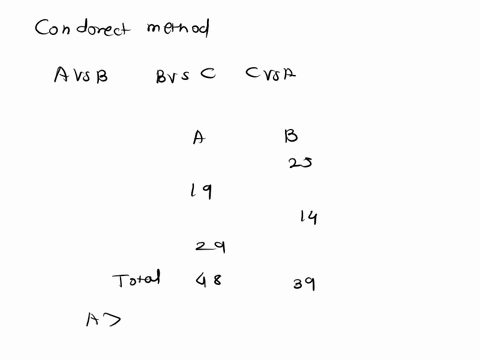 Condorect method
A vs B B vs C C vs A
A B
25
19
14
29
Total 48 39
A >